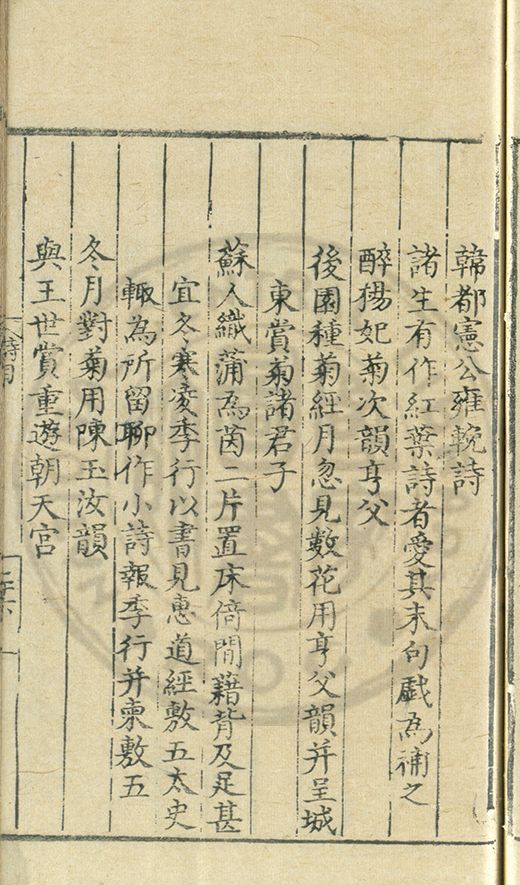 韓都憲公雍輓詩
諸生有作紅葉詩者愛其末句戯為補之
醉楊妃菊次韻亨父
後園種菊經月忽見數花用亨父韻并呈城
東賞菊諸君子
蘇人織蒲為茵二片置床倚間藉背及足甚
宜冬寒凌季行以書見惠道經敷五太史
輙為所留聊作小詩報季行并柬敷五
冬月對菊用陳玉汝韻
與王世賞重遊朝天宮